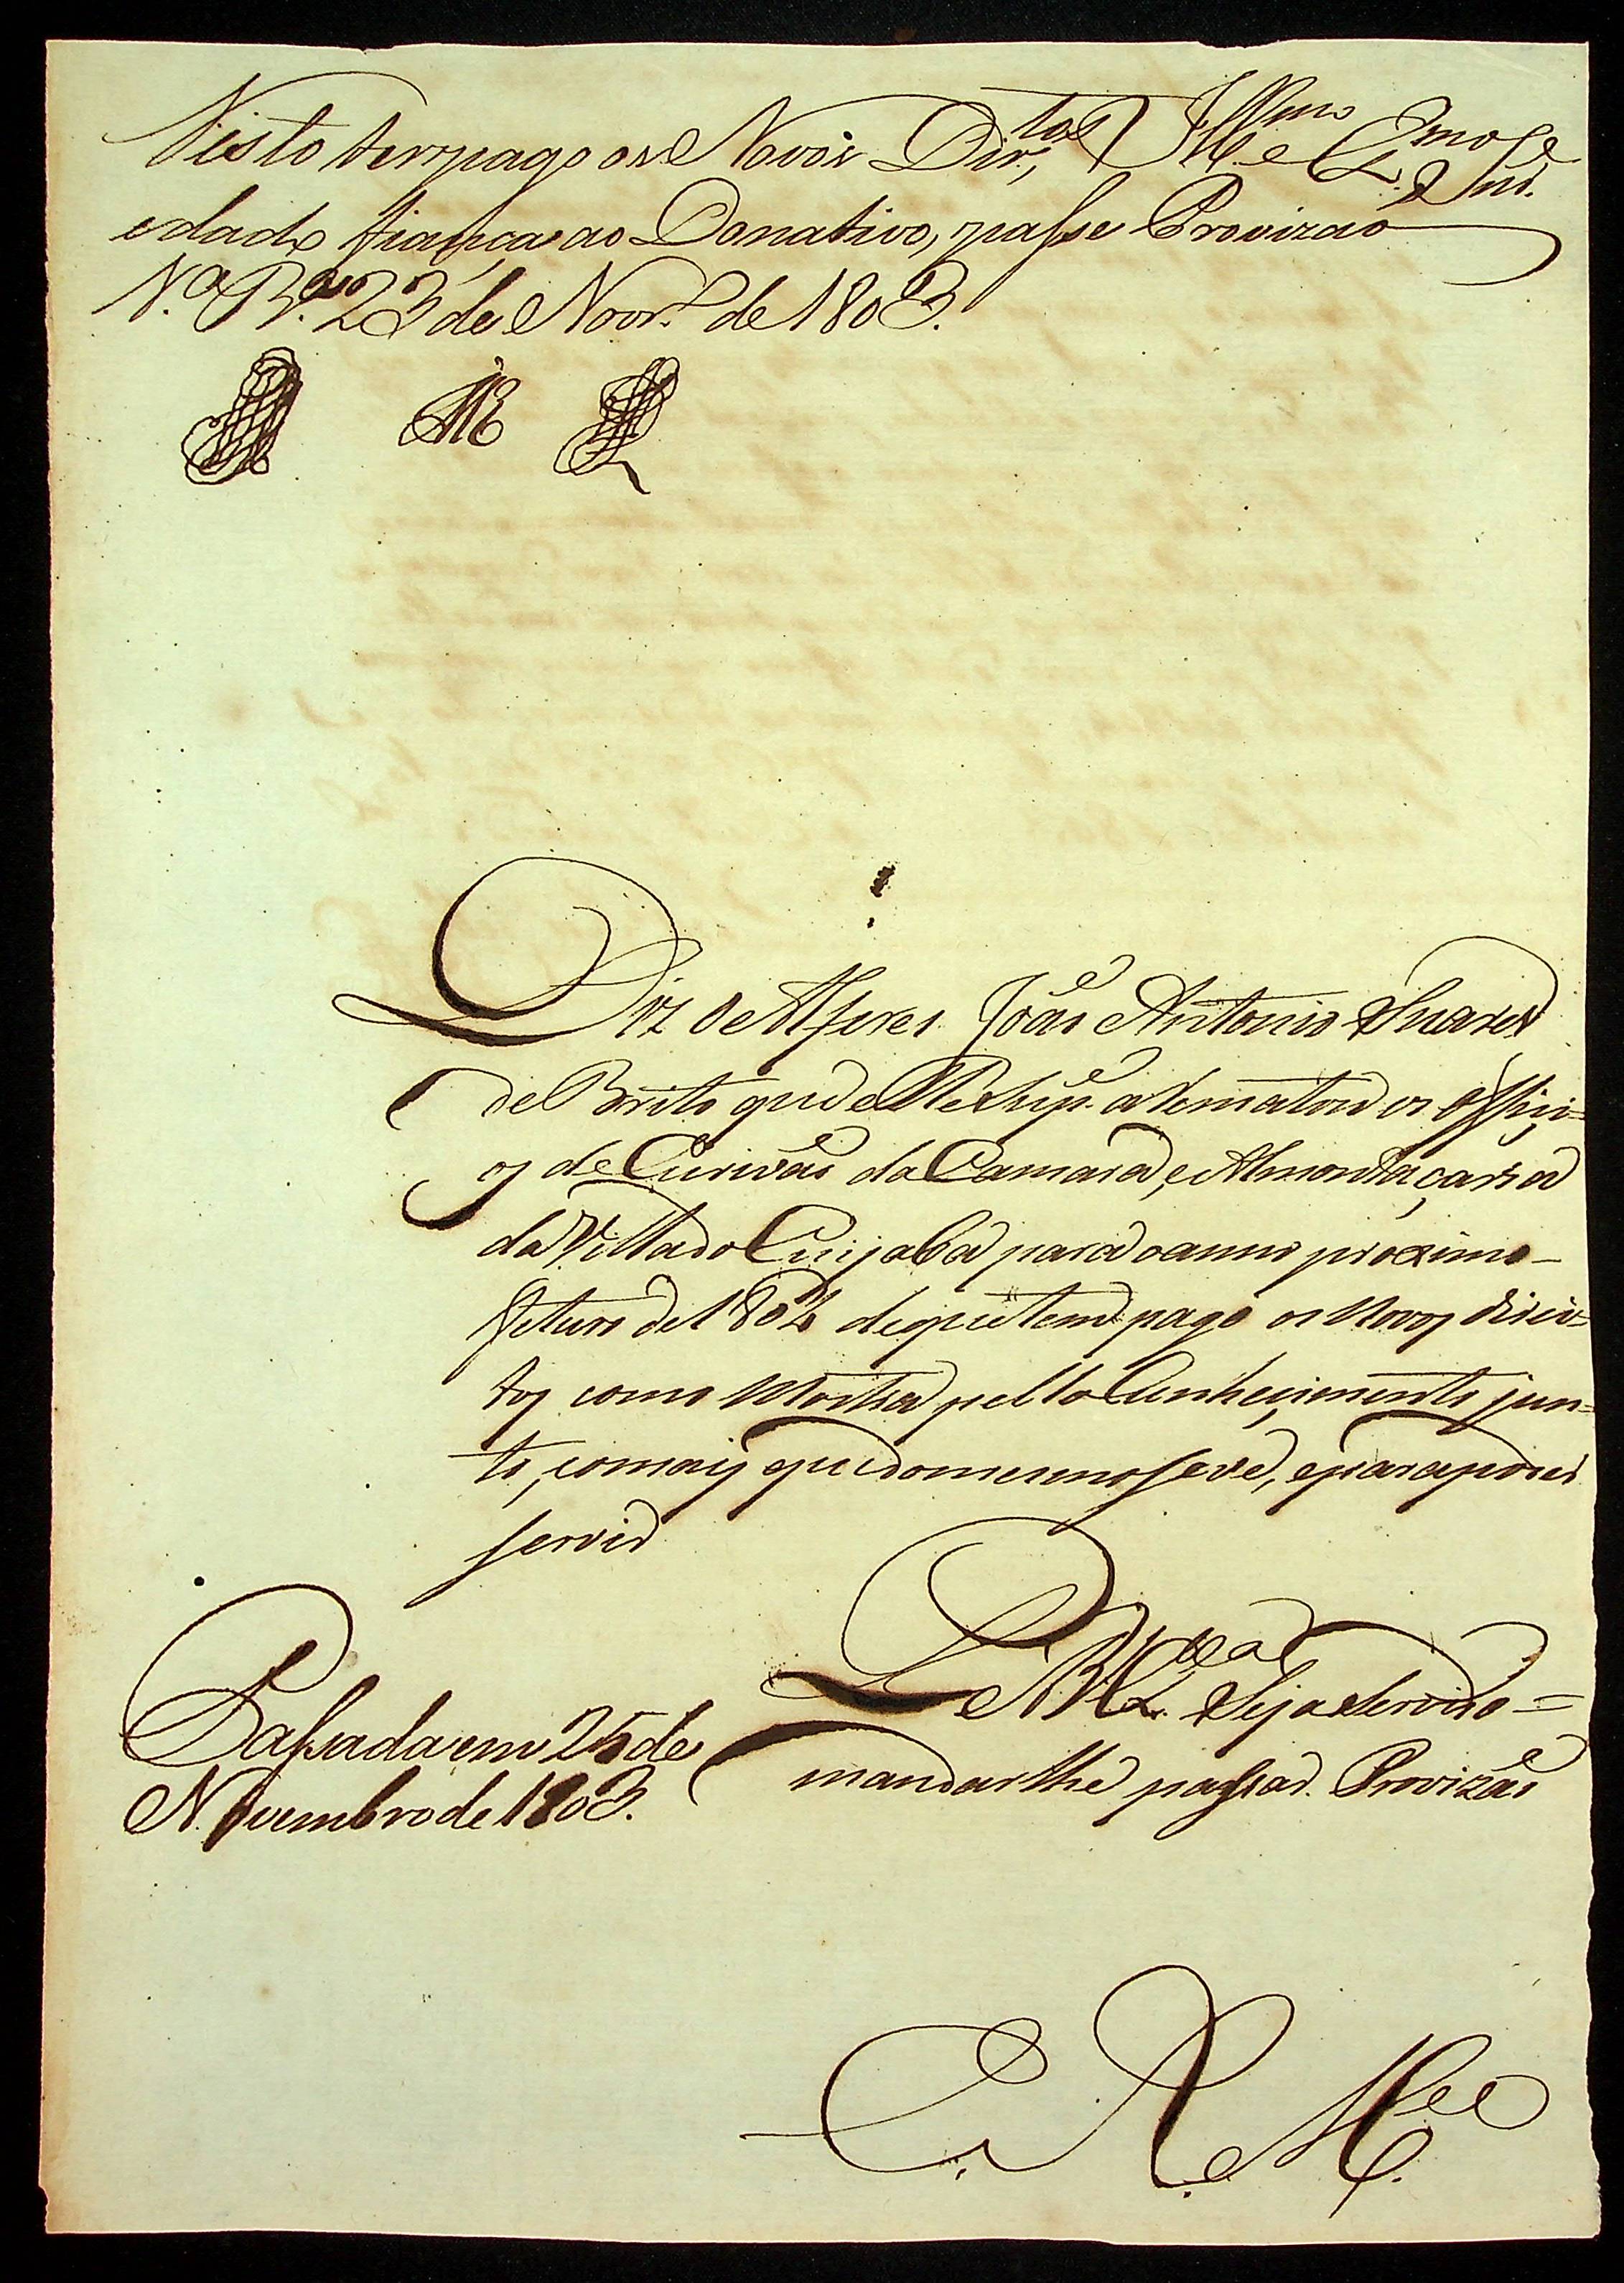 Visto ter pago os Novos Dir.tos Ill.mo e Ex.mo Snr.
e dado fiança ao Donativo, passe Provizaõ
V.a B.a 23 de Novr.o de 1803.
Diz o Alferes Joaõ Antonio Suares
de Brito que elle Sup.e arematou os Offiçi=
os de Escrivaõ da Camara, e Almontaçaria
da Villa do Cuyabá para o anno proximo
futuro de 1804 de que tem pago os Novos direi=
tos como Mostra pello Conheçimento jun=
to, como çe que do mesmo se vê, e para poder
servir
P. a V. Ex.a Seja Servido=
mandarlhe passar Provizaõ
Passada em 25 de
Novembro de 1803.
E. R. M.ce